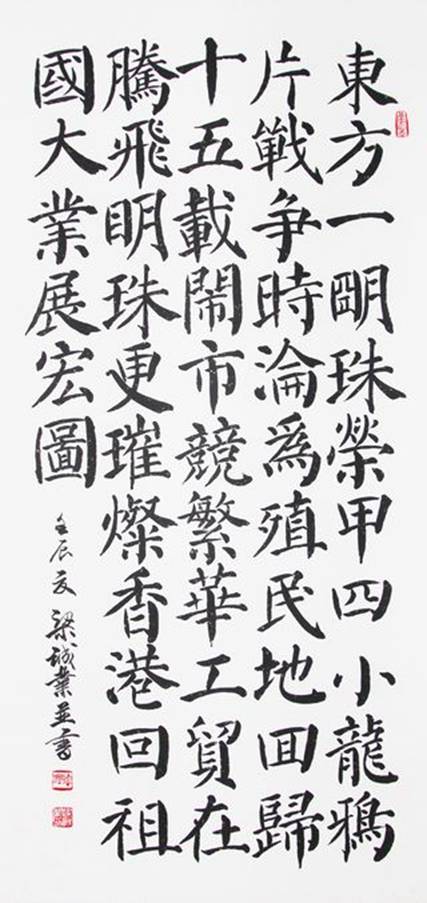 東方一朙珠榮甲四小龍鴉
片戰争時淪爲殖民地囬歸
十五載鬧市競繁華工貿在
騰飛眀珠更璀燦香港回祖
國大業展宏圖
壬辰夏 梁誠業並書